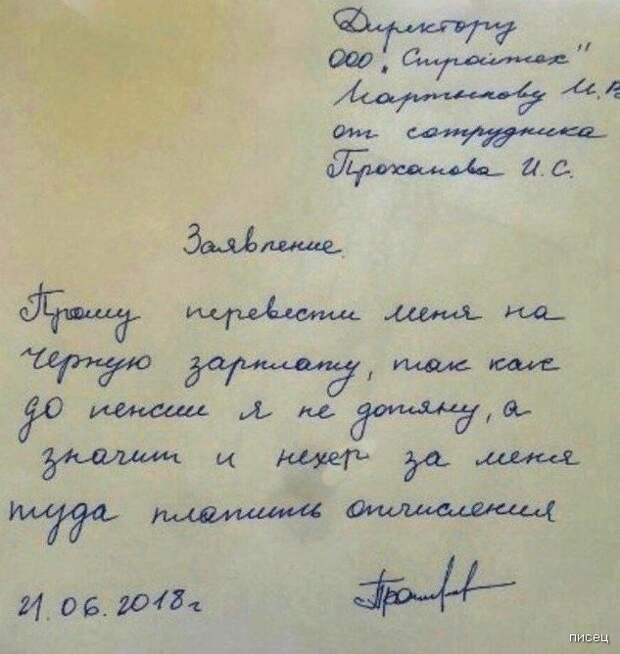 Директору
ООО „Стройтех"
Мартынову И.В
от сотрудника
Проханова И.С.
Заявление.
Прошу перевести меня на
черную зарплату, так как
до пенсии я не дотяну, а
значит и нехер за меня
туда платить отчисления
21.06.2018г
писец